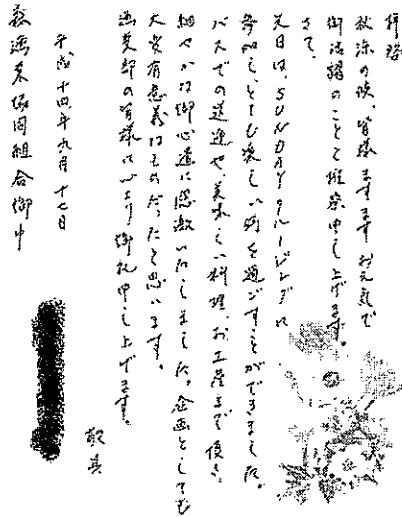 拝啓
秋涼の候、皆様ますますお元気で
御活躍のことと推察申し上げます。
さて、
先日は、SUNDAYクルージングに
参加し、とても楽しい時を過ごすことができました。
バスでの送迎や、美味しい料理、お土産まで頂き、
細やかな御心遣に感激いたしました。企画としても
大変有意義なものだったと思います。
企業部の皆様に心より御礼申し上げます。
敬具
平成十四年九月十七日
組合御中